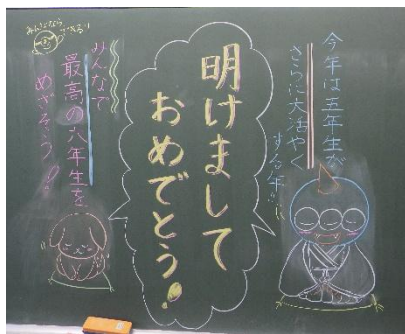 今年は五年生が
さらに大活やく
する年!!
明けまして
おめでとう!
みんなで
最高の六年生を
めざそう!!
みんななら
できる!!